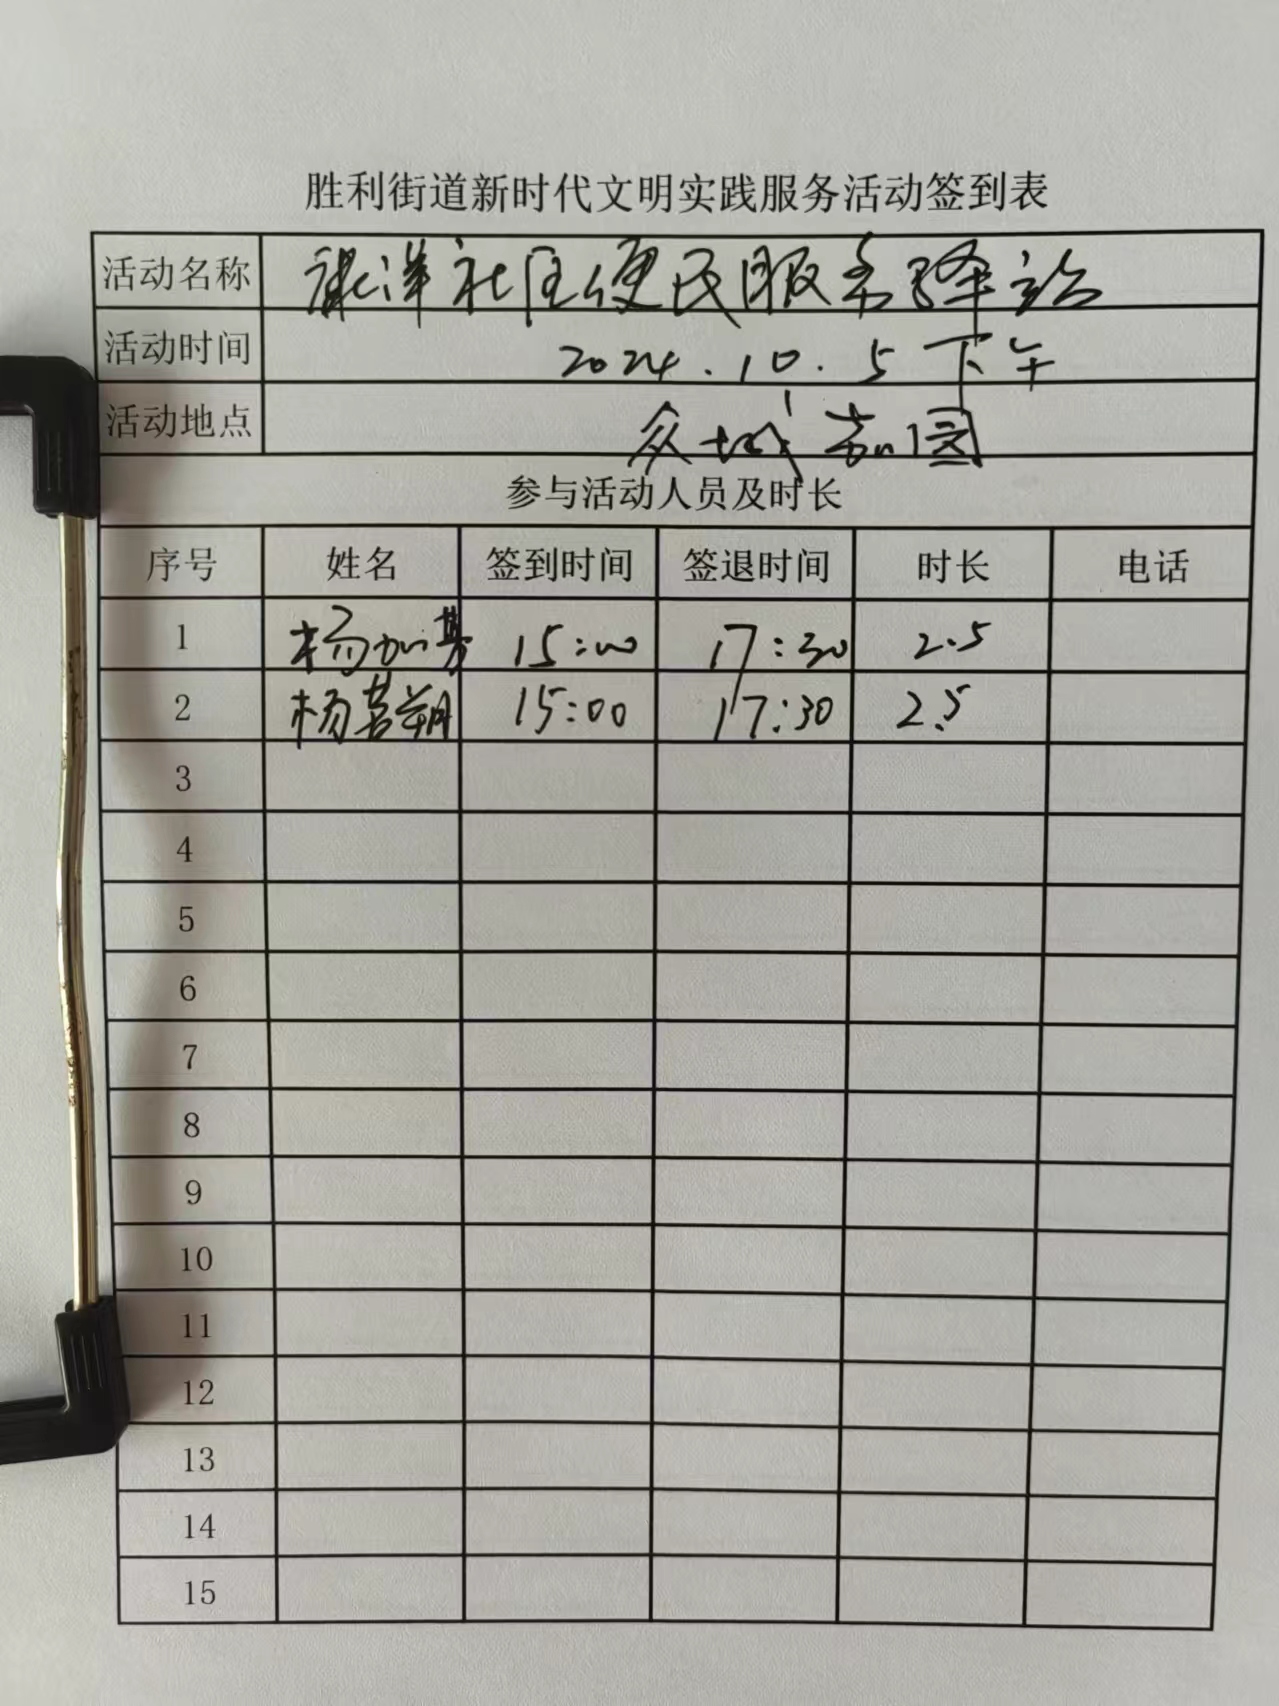 胜利街道新时代文明实践服务活动签到表
活动名称 洋社区便民服务驿站
活动时间 2024.10.5 下午
活动地点 众城嘉园
参与活动人员及时长
序号 姓名 签到时间 签退时间 时长 电话
1 杨加其 15:00 17:30 2.5
2 杨茗朔 15:00 17:30 2.5
3
4
5
6
7
8
9
10
11
12
13
14
15